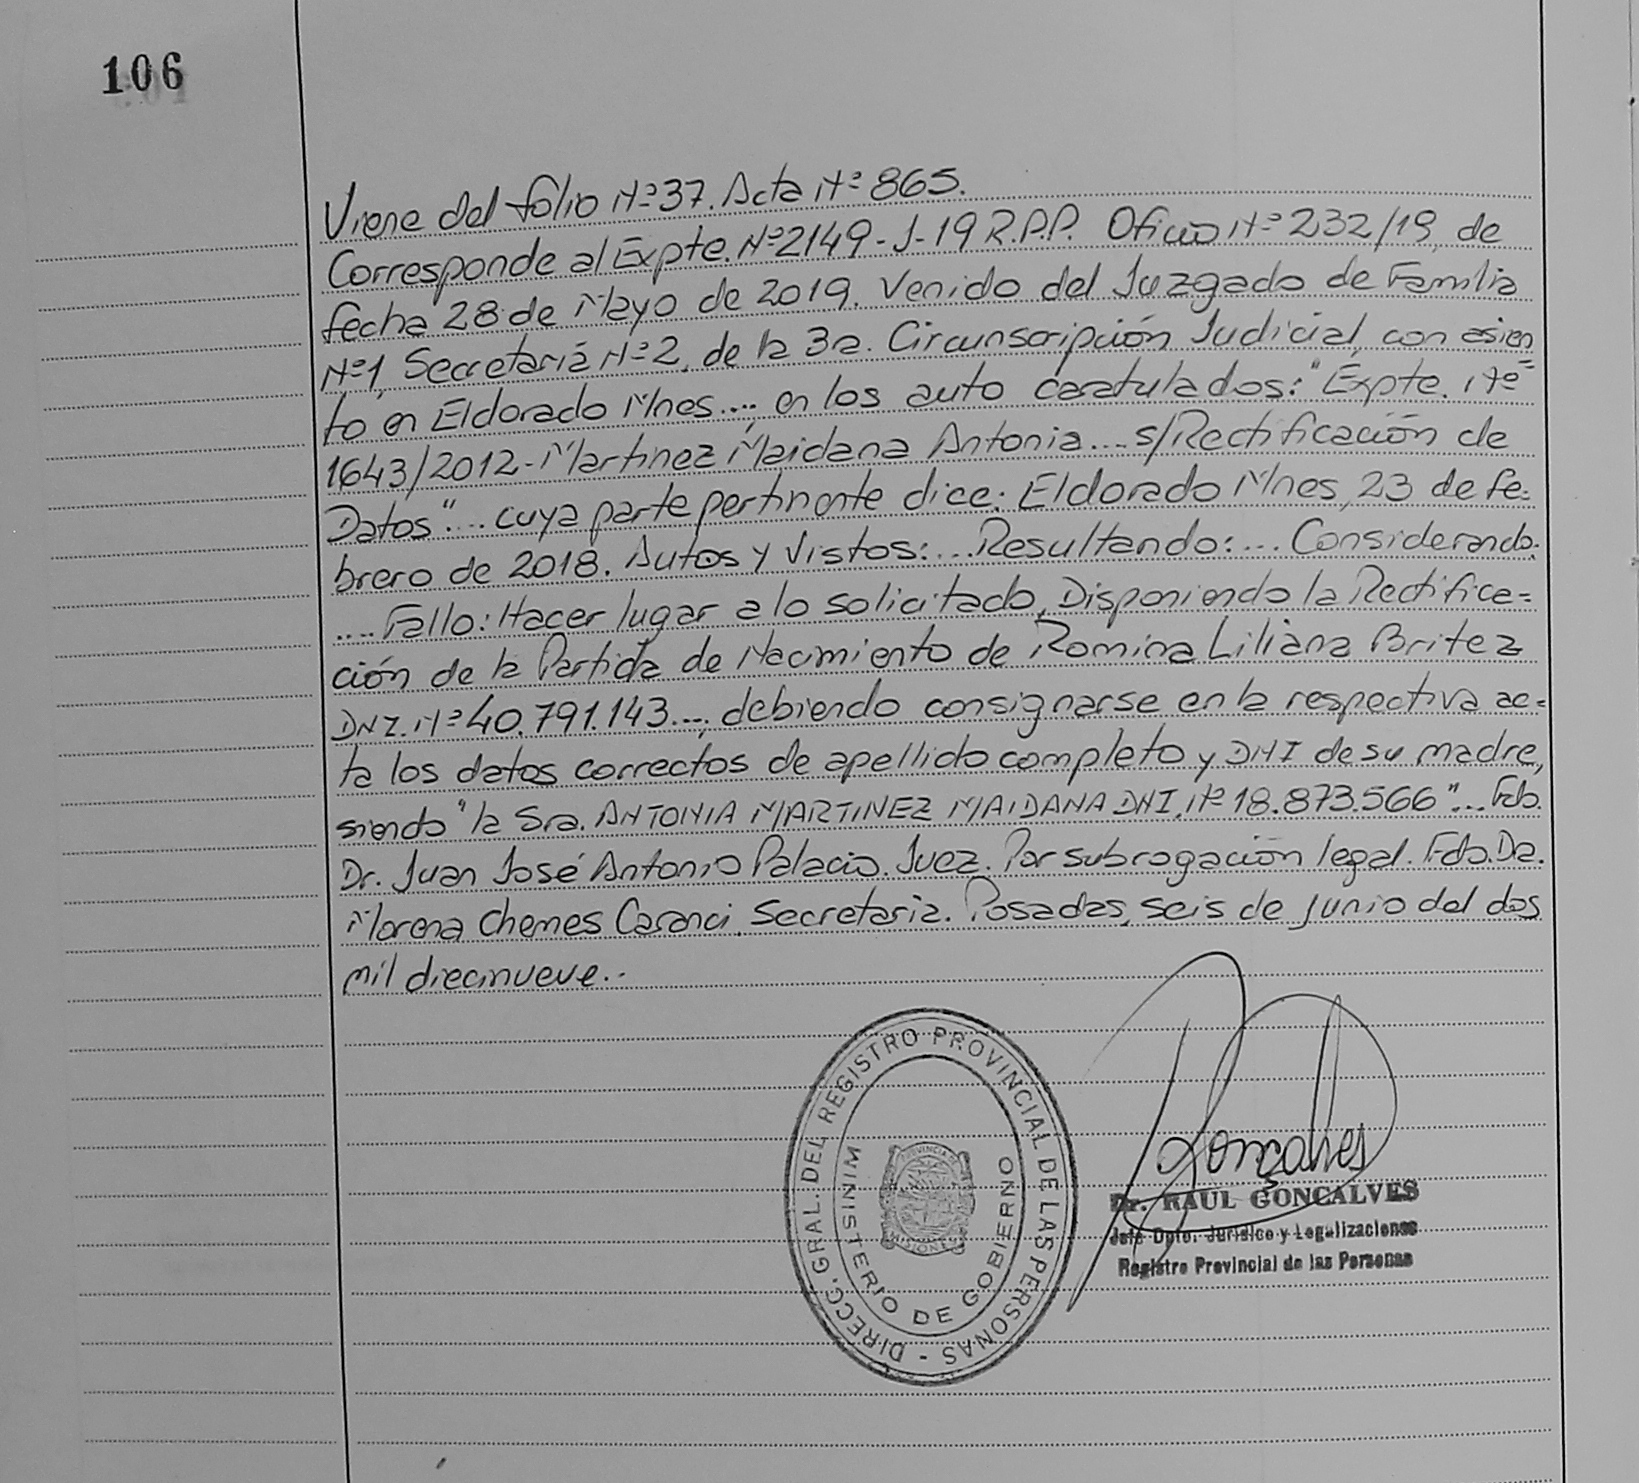 106
Viene del folio Nº 37. Acta Nº 865.
Corresponde al Expte. Nº 2149-J-19 R.P.P. Oficio Nº 232/19, de
fecha 28 de Mayo de 2019. Venido del Juzgado de Familia
Nº 1, Secretaría Nº 2, de la 3a. Circunscripción Judicial, con asien=
to en Eldorado Mnes...., en los auto caratulados: "Expte. Nº
1643/2012 - Martinez Maidana Antonia.... s/Rectificación de
Datos".... cuya parte pertinente dice: Eldorado Mnes, 23 de fe=
brero de 2018. Autos y Vistos:... Resultando:... Considerando:
.... Fallo: Hacer lugar a lo solicitado, Disponiendo la Rectifica=
ción de la Partida de Nacimiento de Romina Liliana Britez
DNI. Nº 40.791.143...., debiendo consignarse en la respectiva ac=
ta los datos correctos de apellido completo y DNI de su madre,
siendo "la Sra. ANTONIA MARTINEZ MAIDANA DNI. Nº 18.873.566"... Fdo.
Dr. Juan José Antonio Palacio. Juez. Por subrogación legal. Fdo. Da.
Morena Chemes Caranci. Secretaria. Posadas, seis de junio del dos
mil diecinueve..-
DIRECC. GRAL. DEL REGISTRO PROVINCIAL DE LAS PERSONAS -
MINISTERIO DE GOBIERNO
PROVINCIA DE
MISIONES
Gonçalves
Dr. RAUL GONÇALVES
Jefe Dpto. Jurídico y Legalizaciones
Registro Provincial de las Personas